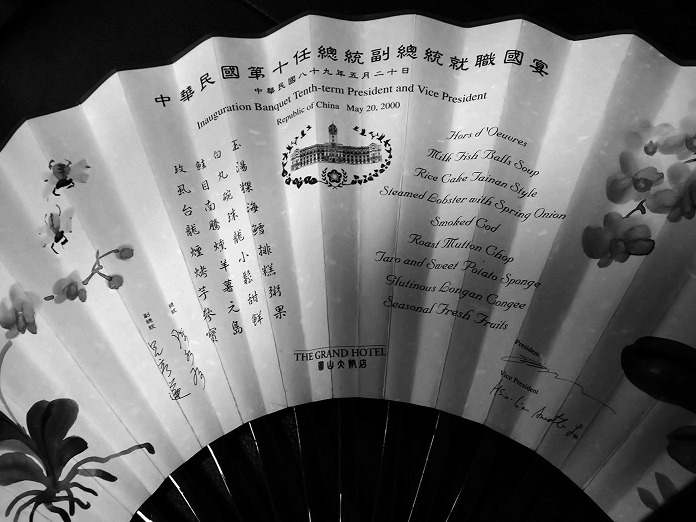 中華民國第十任總統副總統就職國宴
中華民國八十九年五月二十日
Inauguration Banquet Tenth-term President and Vice President
Republic of China May 20, 2000
玫鮭白玉
虱目丸湯
台南碗粿
龍騰珠海
煙燻龍鱈
烤羊小排
芋薯鬆糕
元甜粥
寶島鮮果
總統
副總統
Hors d'Oeuvres
Milk Fish Balls Soup
Rice Cake Tainan Style
Steamed Lobster with Spring Onion
Smoked Cod
Roast Mutton Chop
Taro and Sweet Potato Sponge
Glutinous Longan Congee
Seasonal Fresh Fruits
THE GRAND HOTEL
圓山大飯店
President
Vice President